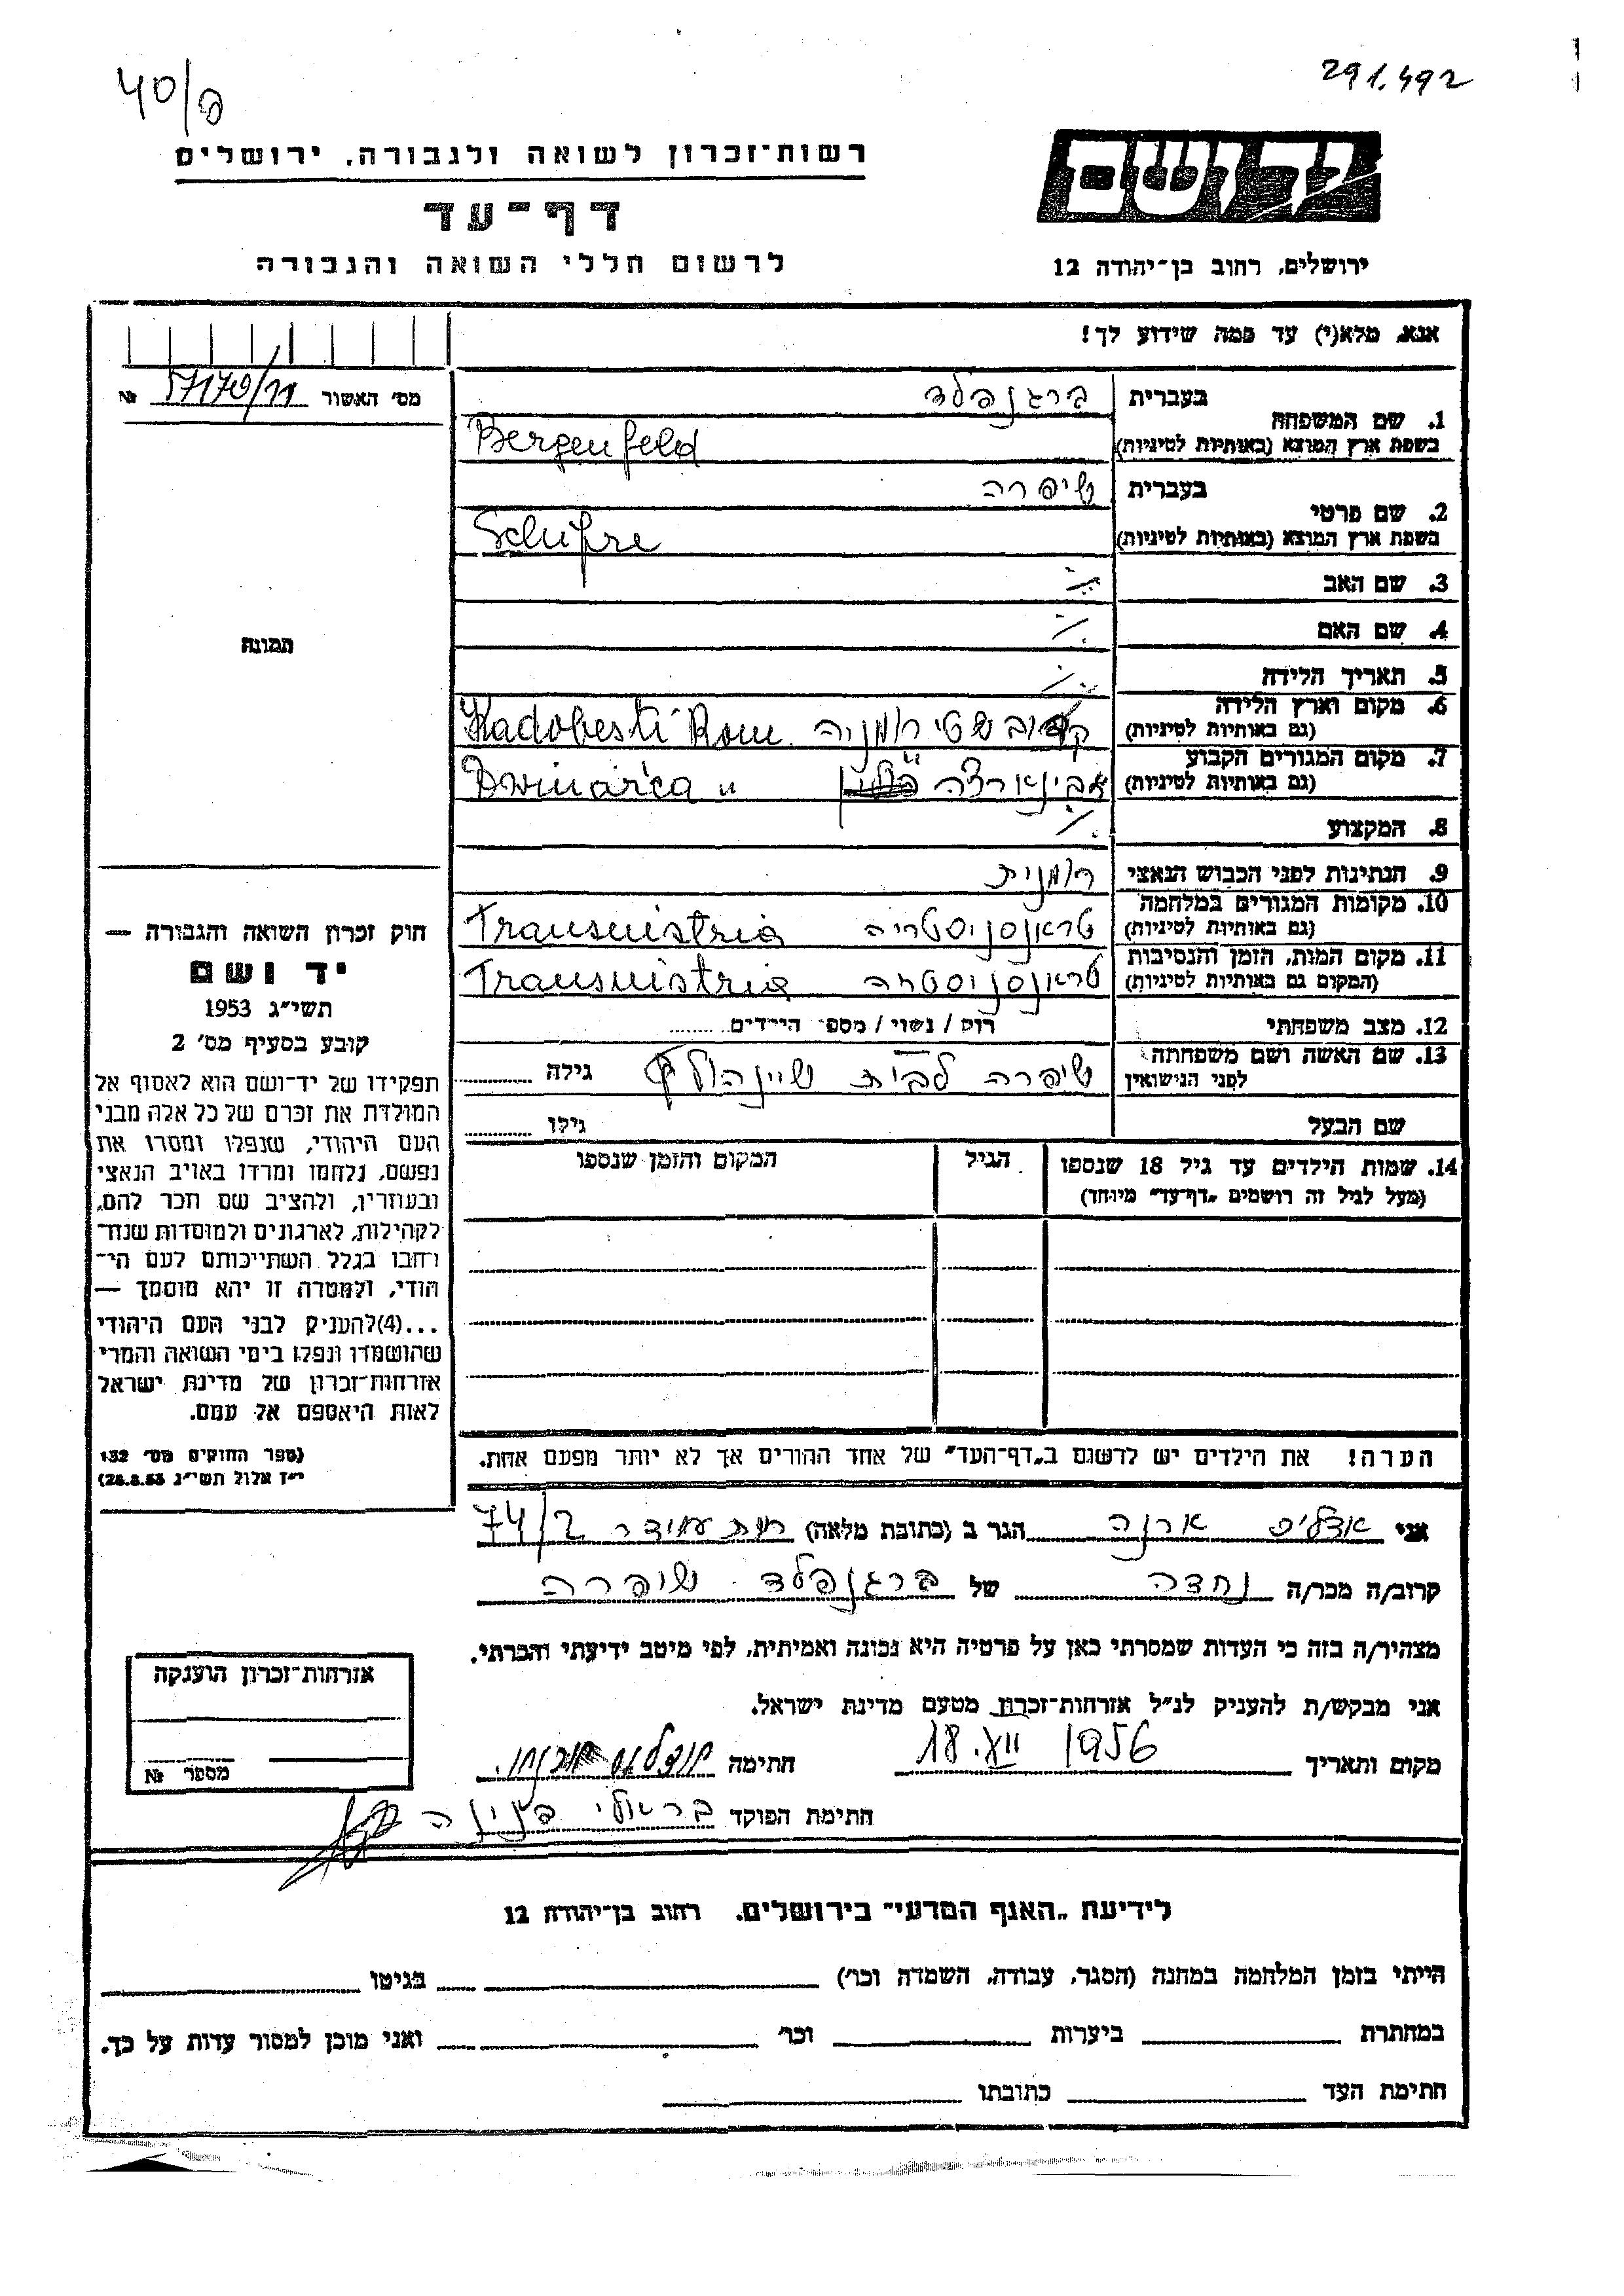 40/פ
291.492
רשות-זכרון לשואה ולגבורה, ירושלים
יד ושם
דף-עד
לרשום חללי השואה והגבורה
ירושלים, רחוב בן-יהודה 12
אנא, מלא(י) עד כמה שידוע לך!
מס' האשור № 57170/11
1. שם המשפחה
בעברית ברגנפלד
בשפת ארץ המוצא (באותיות לטיניות) Bergenfeld
2. שם פרטי
בעברית שיפרה
בשפת ארץ המוצא (באותיות לטיניות) Schifre
3. שם האב
4. שם האם
תמונה
5. תאריך הלידה
6. מקום וארץ הלידה
(גם באותיות לטיניות) רומניה Kadobesti Rom.
7. מקום המגורים הקבוע
(גם באותיות לטיניות) "
8. המקצוע
9. הנתינות לפני הכבוש הנאצי רומנית
10. מקומות המגורים במלחמה
(גם באותיות לטיניות) טראנסניסטריה Transnistria
11. מקום המות, הזמן והנסיבות
(המקום גם באותיות לטיניות) טראנסניסטריה Transnistria
12. מצב משפחתי רווק / נשוי / מספר הילדים
13. שם האשה ושם משפחתה
לפני הנישואין שיפרה לבית גילה
שם הבעל גילו
14. שמות הילדים עד גיל 18 שנספו הגיל המקום והזמן שנספו
(מעל לגיל זה רושמים „דף-עד" מיוחד)
חוק זכרון השואה והגבורה —
יד ושם
תשי"ג 1953
קובע בסעיף מס' 2
תפקידו של יד-ושם הוא לאסוף אל
המולדת את זכרם של כל אלה מבני
העם היהודי, שנפלו ומסרו את
נפשם, נלחמו ומרדו באויב הנאצי
ובעוזריו, ולהציב שם וזכר להם,
לקהילות, לארגונים ולמוסדות שנח-
רחבו בגלל השתייכותם לעם הי-
הודי, ולמטרה זו יהא מוסמך —
...(4)להעניק לבני העם היהודי
שהושמדו ונפלו בימי השואה והמרי
אזרחות-זכרון של מדינת ישראל
לאות היאספם אל עמם.
(ספר החוקים מס' 132
י"ז אלול תשי"ג 28.8.53)
הערה! את הילדים יש לרשום ב„דף-העד" של אחד ההורים אך לא יותר מפעם אחת.
אני ארנה הגר ב (כתובת מלאה) 74/2
קרוב/ה מכר/ה נכדה של ברגנפלד שיפרה
מצהיר/ה בזה כי העדות שמסרתי כאן על פרטיה היא נכונה ואמיתית, לפי מיטב ידיעתי והכרתי.
אני מבקש/ת להעניק לנ"ל אזרחות-זכרון מטעם מדינת ישראל.
מקום ותאריך 1956 חתימה
חתימת הפוקד
אזרחות-זכרון הוענקה
מספר №
לידיעת „האגף המדעי" בירושלים, רחוב בן-יהודה 12
הייתי בזמן המלחמה במחנה (הסגר, עבודה, השמדה וכו') בגיטו
במחתרת ביערות וכו' ואני מוכן למסור עדות על כך.
חתימת העד כתובתו